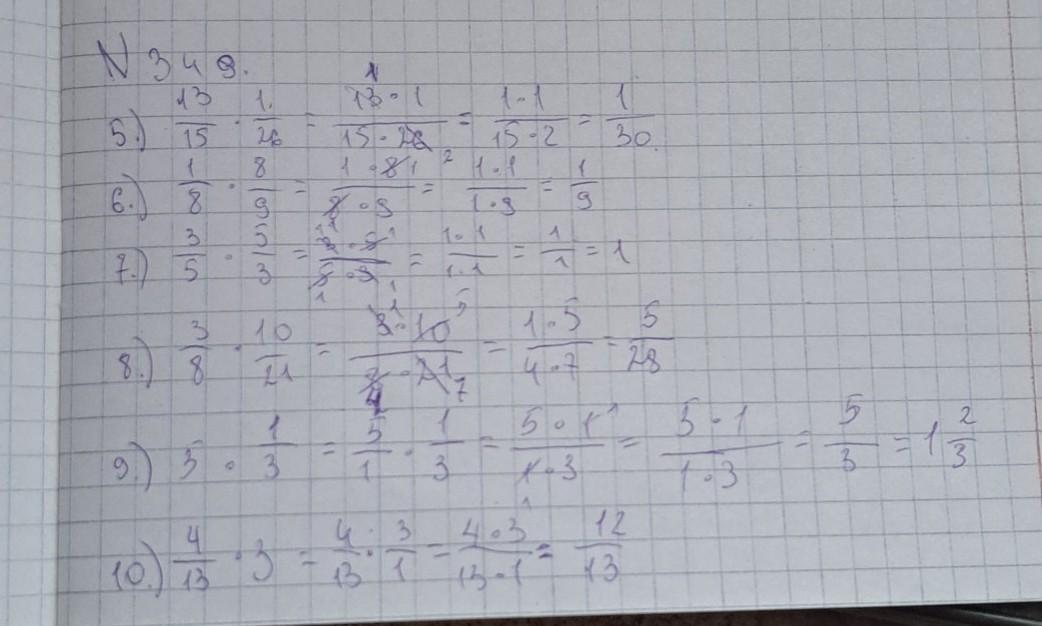 N 349.
5.) 13/15 · 1/26 = 13·1/15·26 = 1·1/15·2 = 1/30.
6.) 1/8 · 8/9 = 1·8/8·9 = 1·1/1·9 = 1/9
7.) 3/5 · 5/3 = 3·5/5·3 = 1·1/1·1 = 1/1 = 1
8.) 3/8 · 10/21 = 3·10/8·21 = 1·5/4·7 = 5/28
9.) 5 · 1/3 = 5/1 · 1/3 = 5·1/1·3 = 5·1/1·3 = 5/3 = 1 2/3
10.) 4/13 · 3 = 4/13 · 3/1 = 4·3/13·1 = 12/13